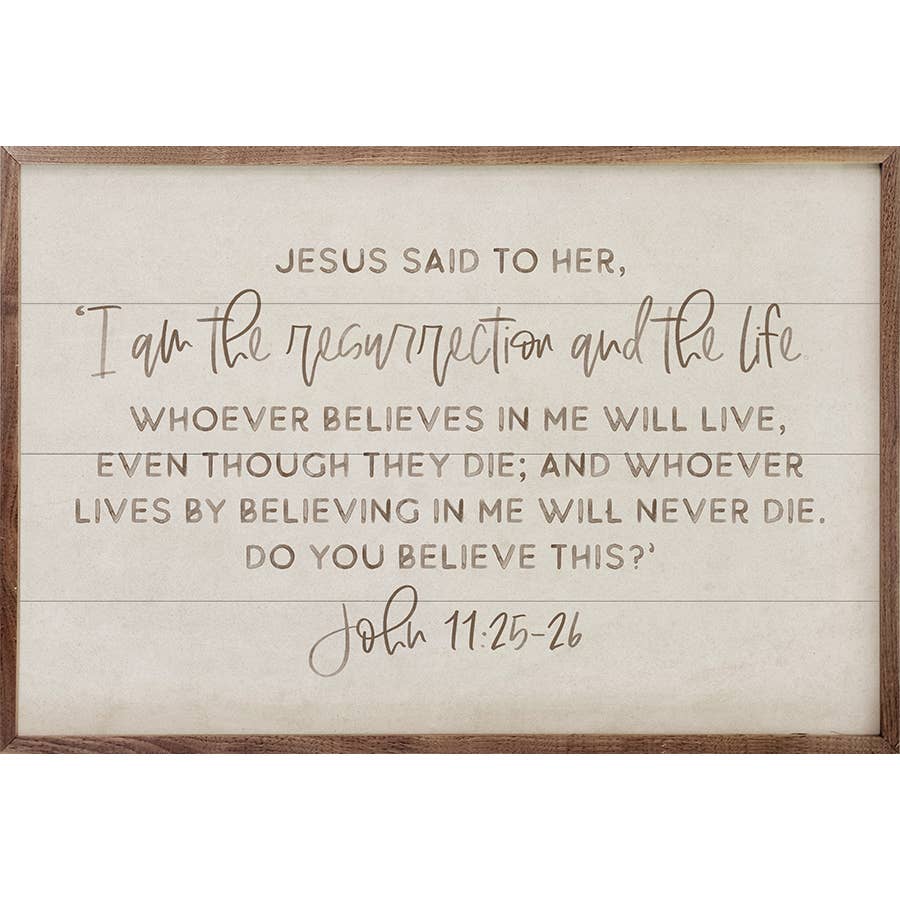 JESUS SAID TO HER,
‘I am the resurrection and the life
WHOEVER BELIEVES IN ME WILL LIVE,
EVEN THOUGH THEY DIE; AND WHOEVER
LIVES BY BELIEVING IN ME WILL NEVER DIE.
DO YOU BELIEVE THIS?’
John 11:25-26